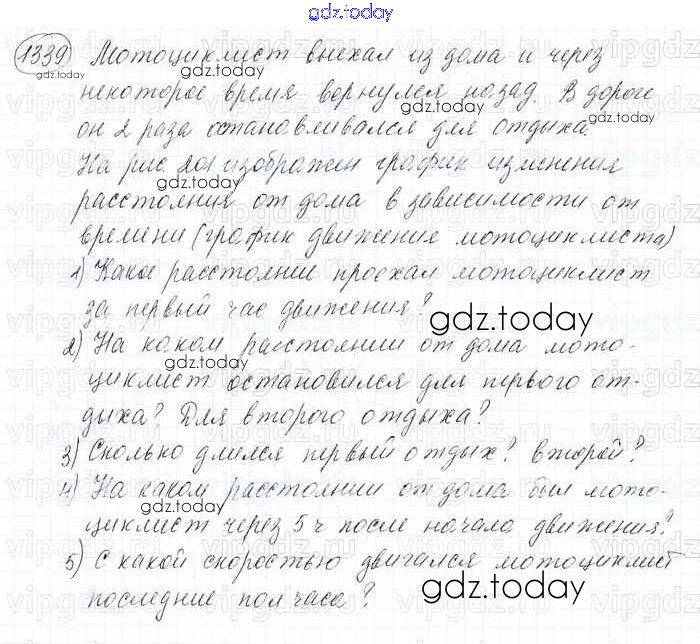 gdz.today
1339 Мотоциклист выехал из дома и через
некоторое время вернулся назад. В дороге
он 2 раза останавливался для отдыха
На рис. 201 изображён график изменения
расстояния от дома в зависимости от
времени (график движения мотоциклиста)
1) Какое расстоянии проехал мотоциклист
за первый час движения?
2) На каком расстоянии от дома мото-
циклист остановился для первого от-
дыха? Для второго отдыха?
3) Сколько длился первый отдых? второй?
4) На каком расстоянии от дома был мото-
циклист через 5 ч после начала движения?
5) С какой скоростью двигался мотоциклист
последние пол часа?